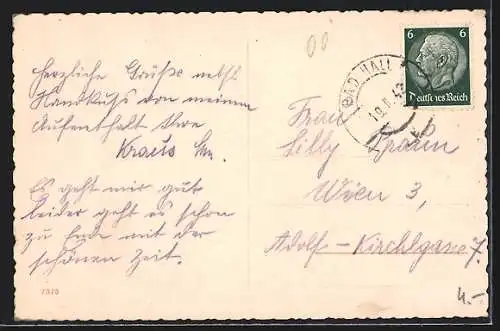 Herzliche Grüße nebst
Handkuss von meinem
Aufenthalt Ihre
Kraus
Es geht mir gut
leider geht es schon
zu Ende mit der
schönen Zeit.
7375
00
6 6
Deutsches Reich
BAD HALL
Frau
Lilly
Wien 3,
Adolf-Kirchlgasse 7.
4.-